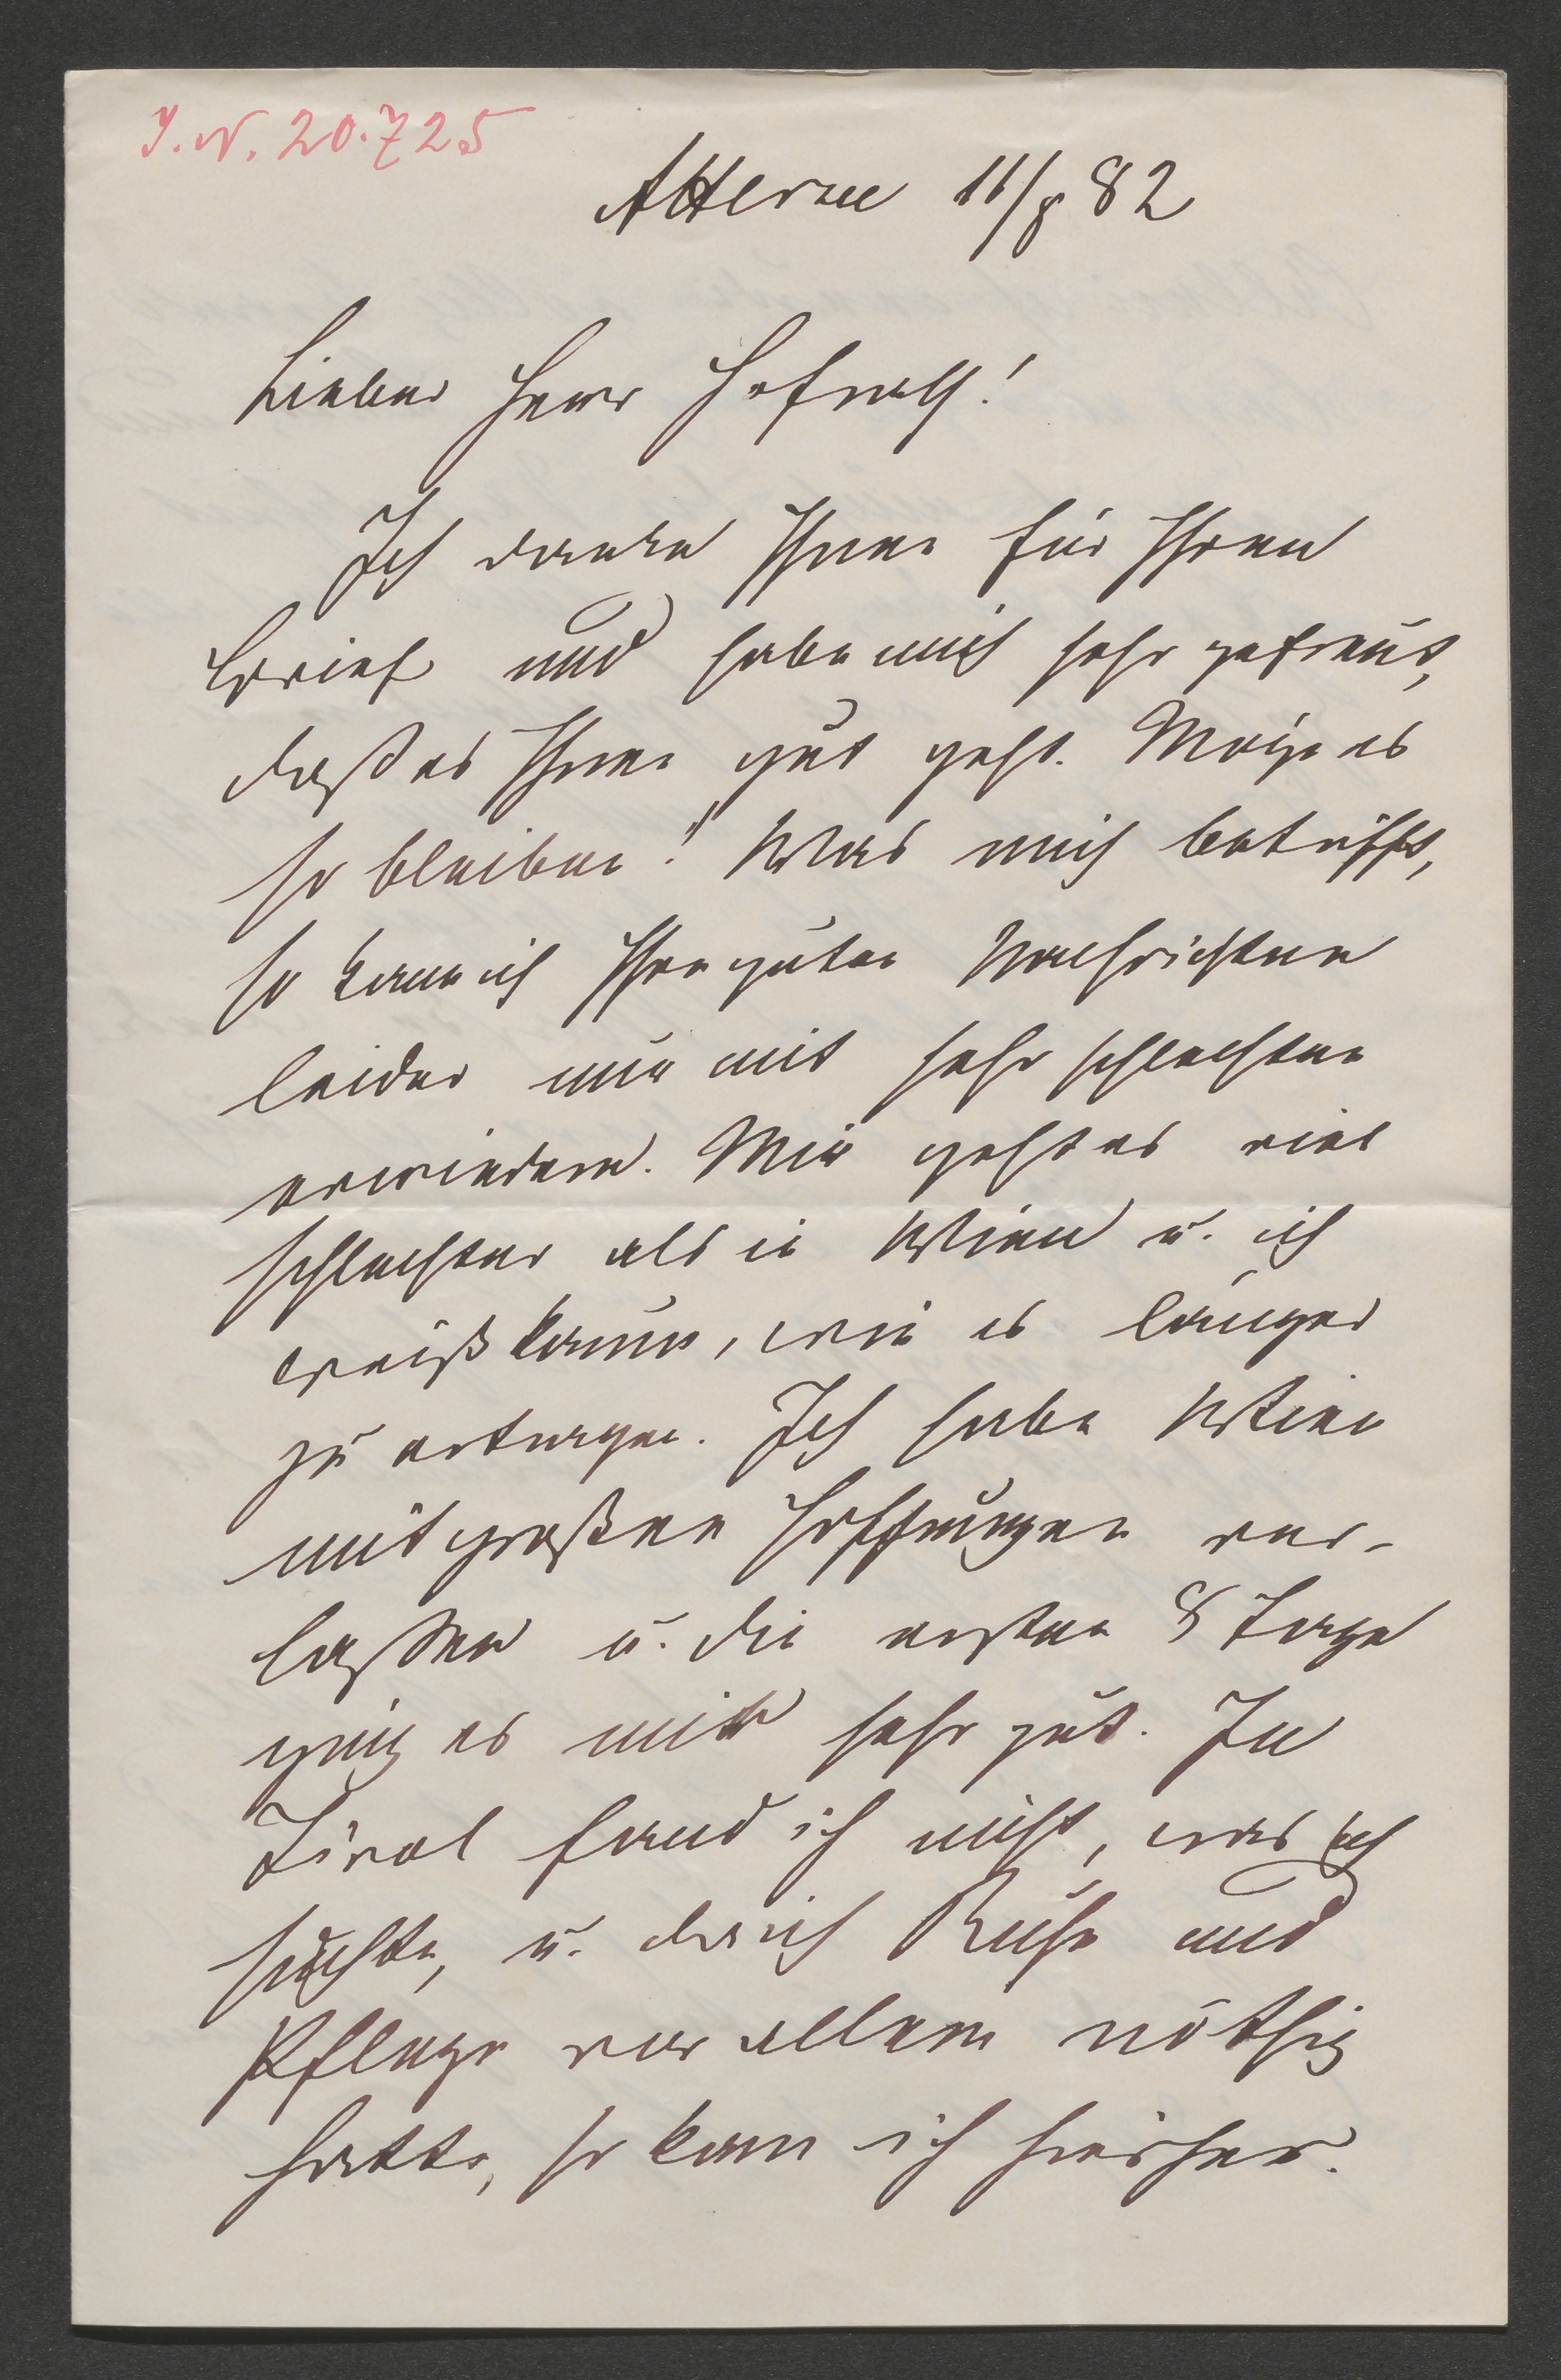 J. N. 20.725
Attersee 11/8 82
Lieber Herr Hofrath!
Ich danke Ihnen für Ihren
Brief und habe mich sehr gefreut,
daß es Ihnen gut geht. Möge es
so bleiben! Was mich betrifft,
so kann ich Ihre guten Nachrichten
leider nur mit sehr schlechten
erwiedern. Mir geht es viel
schlechter als in Wien u. ich
weiß kaum, wie es länger
zu ertragen. Ich habe Wien
mit großen Hoffnungen ver-
lassen u. die ersten 8 Tage
ging es mir sehr gut. In
Tirol fand ich nicht, was ich
suchte, u. da ich Ruhe und
Pflege vor allem nöthig
hatte, so kam ich hierher.